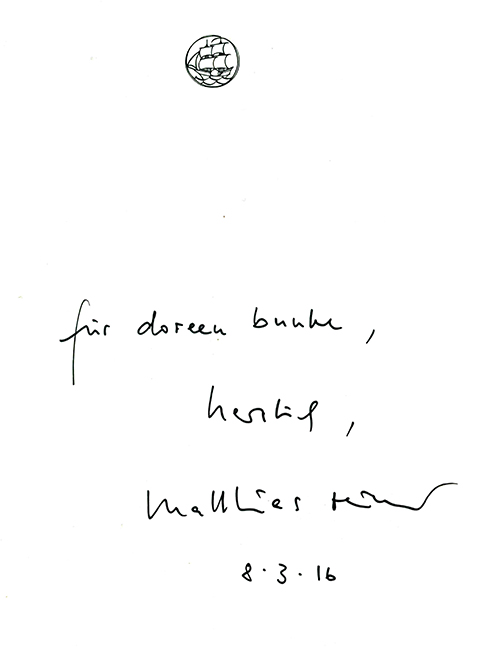 für doreen bunke,
herzlich,
matthias
8.3.16